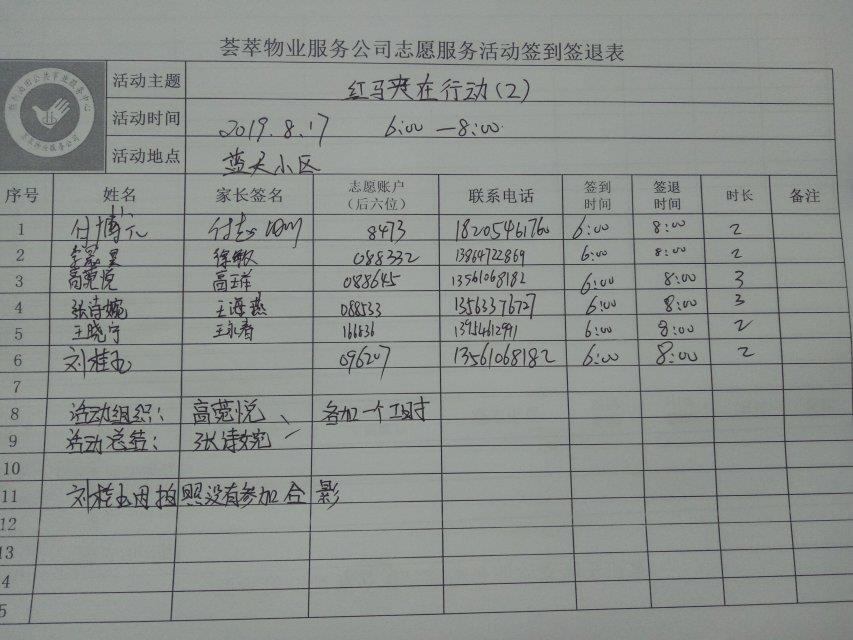 荟萃物业服务公司志愿服务活动签到签退表
活动主题 红马夹在行动(2)
活动时间 2019.8.17 6:00—8:00
活动地点 蓝天小区
序号 姓名 家长签名 志愿账户(后六位) 联系电话 签到时间 签退时间 时长 备注
1 付博元 8473 18205461760 6:00 8:00 2
2 徐敏 088332 13864722869 6:00 8:00 2
3 高菀悦 高玉祥 088645 13561068182 6:00 8:00 3
4 张诗婉 王海燕 088533 13563376727 6:00 8:00 3
5 王晓宁 王永春 166636 13954612991 6:00 8:00 2
6 刘桂玉 096207 13561068182 6:00 8:00 2
7
8 活动组织: 高菀悦、 各加一个工时
9 活动总结: 张诗婉
10
11 刘桂玉因拍照没有参加合影
12
13
4
5